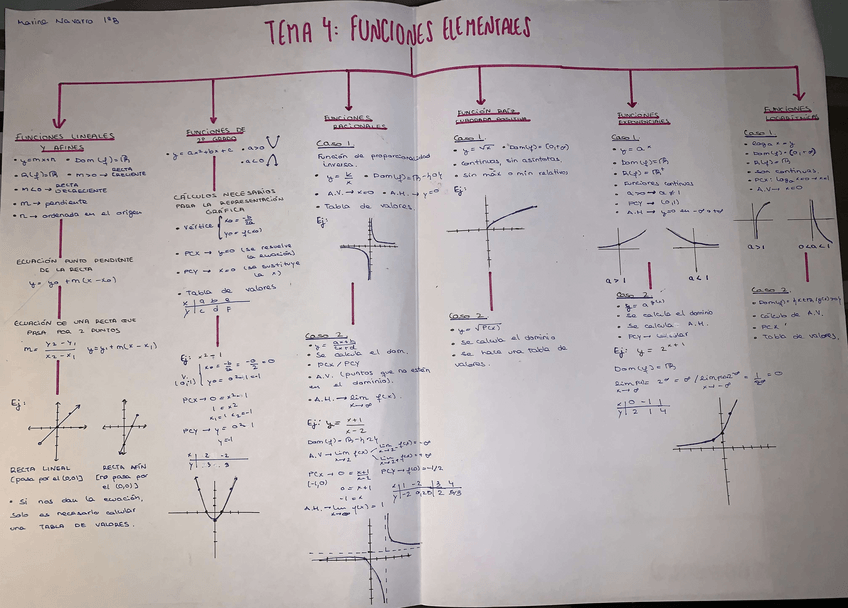 Karina Navarro 1ºB
TEMA 4: FUNCIONES ELEMENTALES
FUNCIONES LINEALES
Y AFINES
• y=mx+n • Dom(f)=ℝ
• R(f)=ℝ • m>0 → RECTA CRECIENTE
• m<0 → RECTA DECRECIENTE
• m → pendiente
• n → ordenada en el origen
ECUACIÓN PUNTO PENDIENTE
DE LA RECTA
y = y0 + m(x-x0)
ECUACIÓN DE UNA RECTA QUE
PASA POR 2 PUNTOS
m = y2-y1 / x2-x1 y=y1+m(x-x1)
Ej:
RECTA LINEAL
(pasa por el (0,0)]
RECTA AFÍN
[no pasa por
el (0,0)]
• Si nos dan la ecuación,
solo es necesario calcular
una TABLA DE VALORES.
FUNCIONES DE
2º GRADO
• y=ax²+bx+c • a>0
• a<0
CÁLCULOS NECESARIOS
PARA LA REPRESENTACIÓN
GRÁFICA
• Vértice { x0 = -b/2a
y0 = f(x0)
• PCX → y=0 (se resuelve
la ecuación)
• PCY → x=0 (se sustituye
la x)
• Tabla de valores
x | a b e
y | c d f
Ej:
V.
PCX → 0 = x²-1
1 = x²
PCY → y =
x | 2 -2
y | 3 3
FUNCIONES
RACIONALES
Caso 1
Función de proporcionalidad
inversa.
• y = k/x • Dom(f)=ℝ-{0}
• A.V. → x=0 • A.H. → y=0
• Tabla de valores
Ej:
Caso 2
• y = ax+b / cx+d
• Se calcula el dom.
• PCX / PCY
• A.V. (puntos que no están
en el dominio).
• A.H. → lim f(x).
x→∞
Ej: y = x+1 / x-2
Dom(f)=ℝ-{2}
PCX → 0 = x+1 / x-2 PCY → f(0)=-1/2
(-1,0)
0 = x+1
-1 = x
A.H. → lim f(x) = 1
FUNCIÓN RAÍZ
CUADRADA POSITIVA
Caso 1.
• y = √x • Dom(f)=[0,+∞)
• continuas, sin asíntotas.
• sin máx o mín relativos
Ej:
Caso 2
• y = √P(x)
• se calcula el dominio
• se hace una tabla de
valores.
FUNCIONES
EXPONENCIALES
Caso 1.
• y = aˣ
• Dom(f)=ℝ
• R(f)=ℝ⁺
• Funciones continuas
• a>0 → a≠1
• PCY → (0,1)
a>1
a<1
Caso 2
• Se calcula el dominio
• Se calcula A.H.
Ej: y = 2ˣ⁺¹
Dom(f)=ℝ
x | 0 -1 1
y | 2 1 4
FUNCIONES
LOGARÍTMICAS
Caso 1.
• Dom(f)=(0,+∞)
• R(f)=ℝ
• son continuas
• A.V → x=0
a>1
0<a<1
Caso 2.
• Cálculo de A.V.
• PCX
• Tabla de valores.